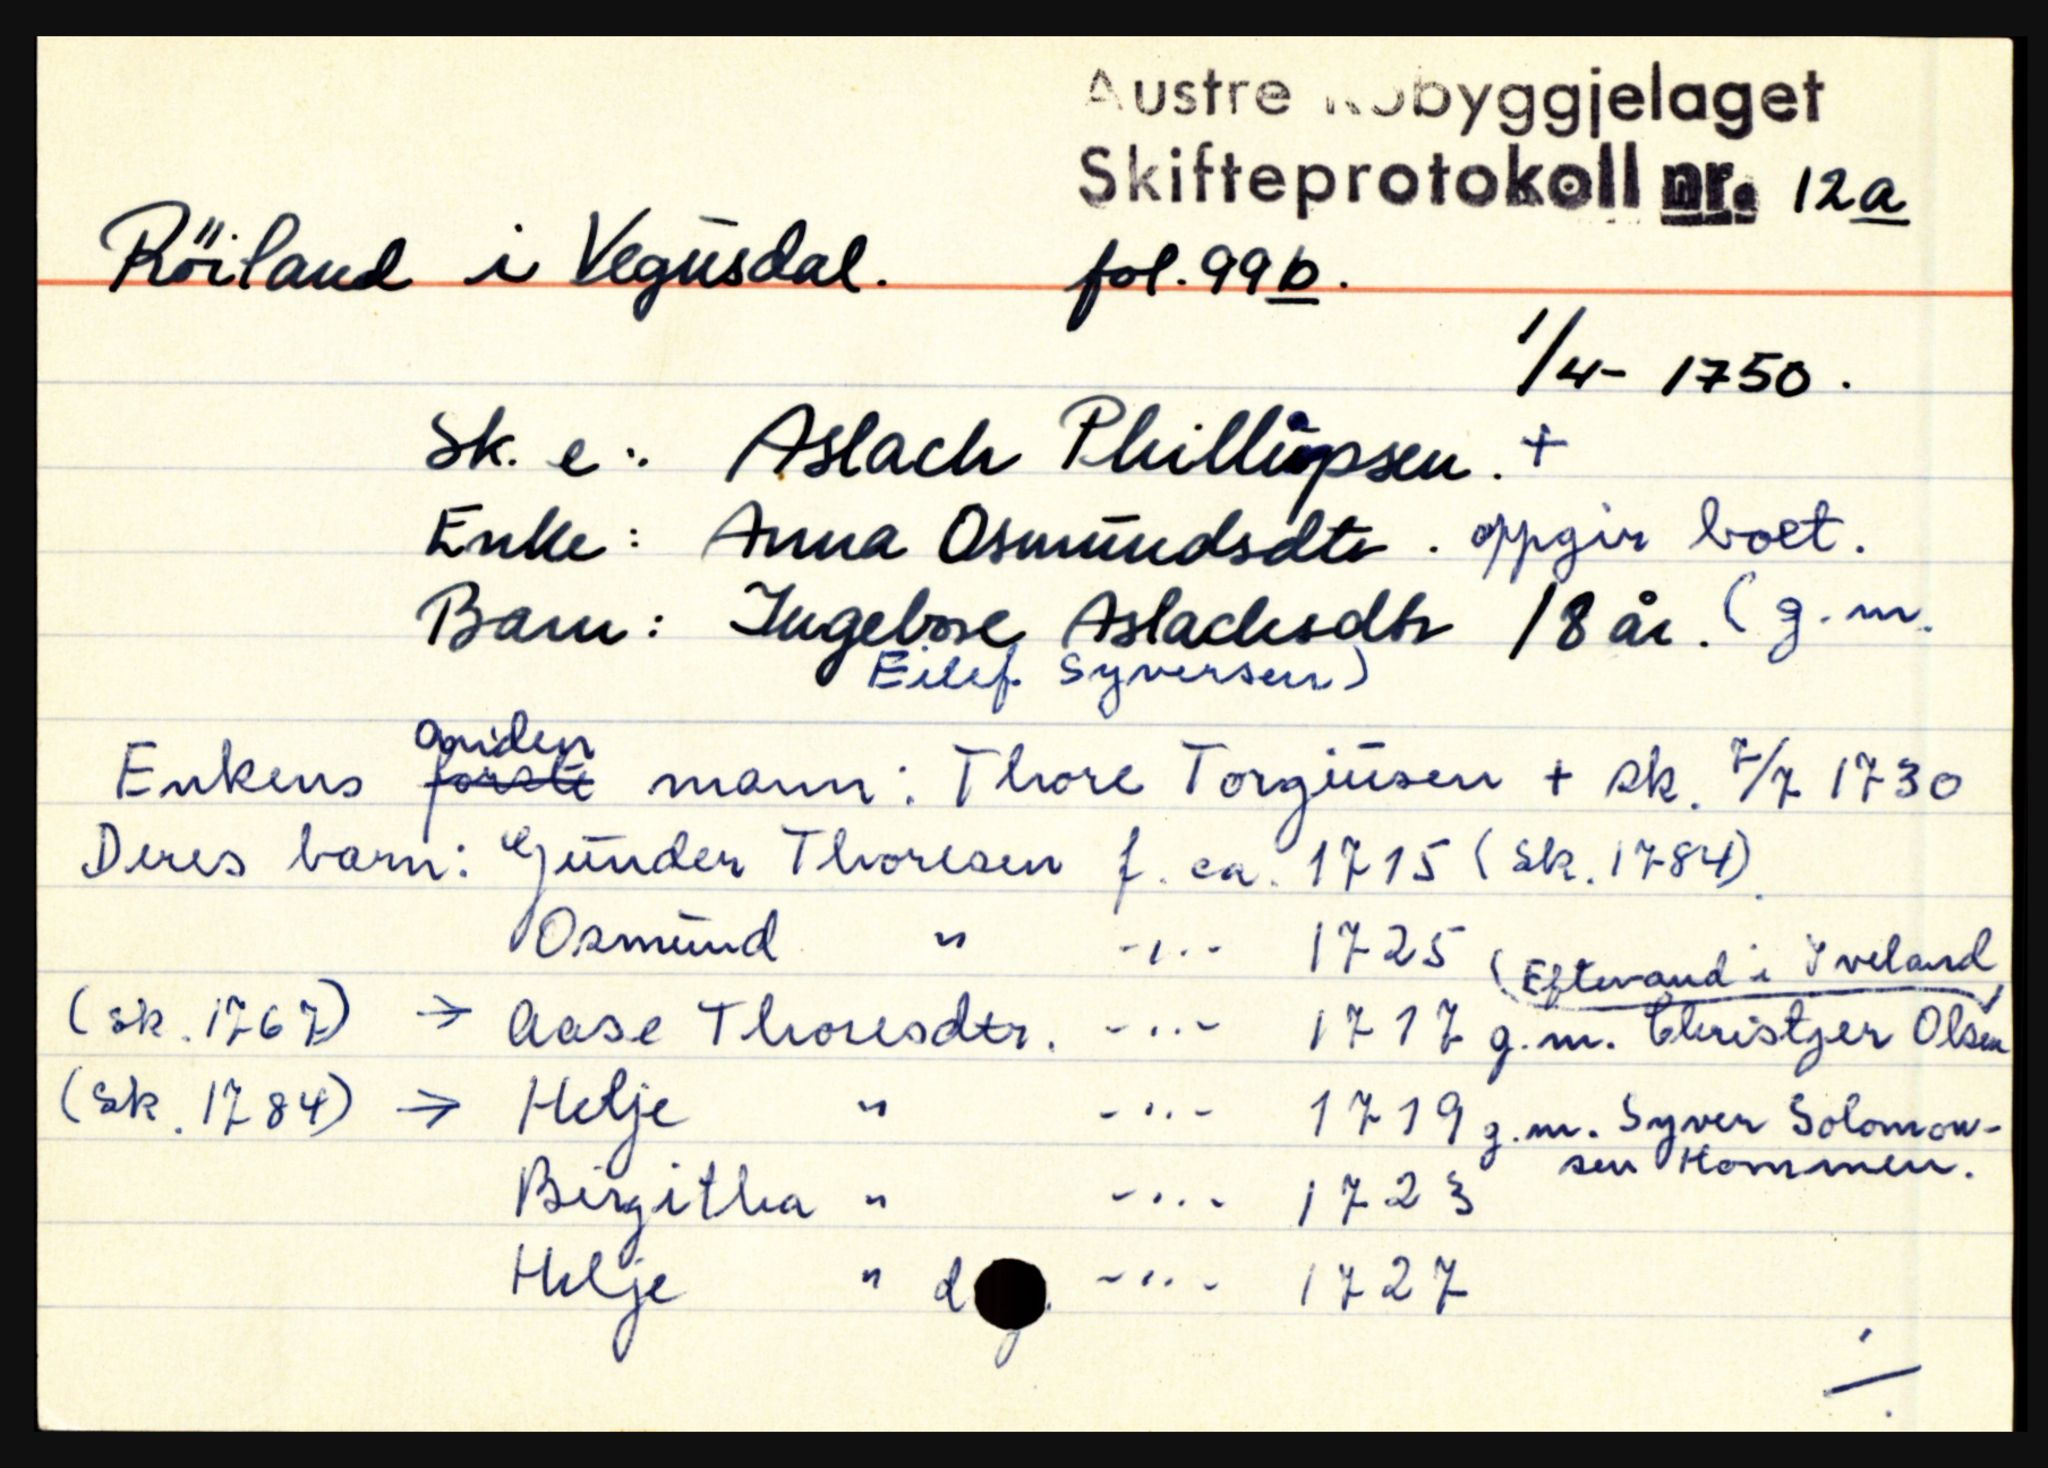 Austre Robyggjelaget
Skifteprotokoll nr. 12a
Röiland i Vegusdal. fol. 99b.
1/4- 1750.
Sk. e.: Aslach Phillupsen. +
Enke: Anna Osmundsdtr. oppgir boet.
Barn: Ingebor Aslachsdtr 18 år. (g.m.
Eilef Syversen)
anden
Enkens første mann: Thore Torgiusen + sk. 7/7 1730
Deres barn: Gunder Thoresen f. ca. 1715 (Sk. 1784)
Osmund " -"- 1725
(Eftervand i Iveland)
(sk. 1767) → Aase Thoresdtr. -"- 1717 g.m. Christjer Olsen
(Sk. 1784) → Helje " -"- 1719 g.m. Syver Solomon-
sen Hommen.
Birgitha " -"- 1723
Helje " -"- 1727